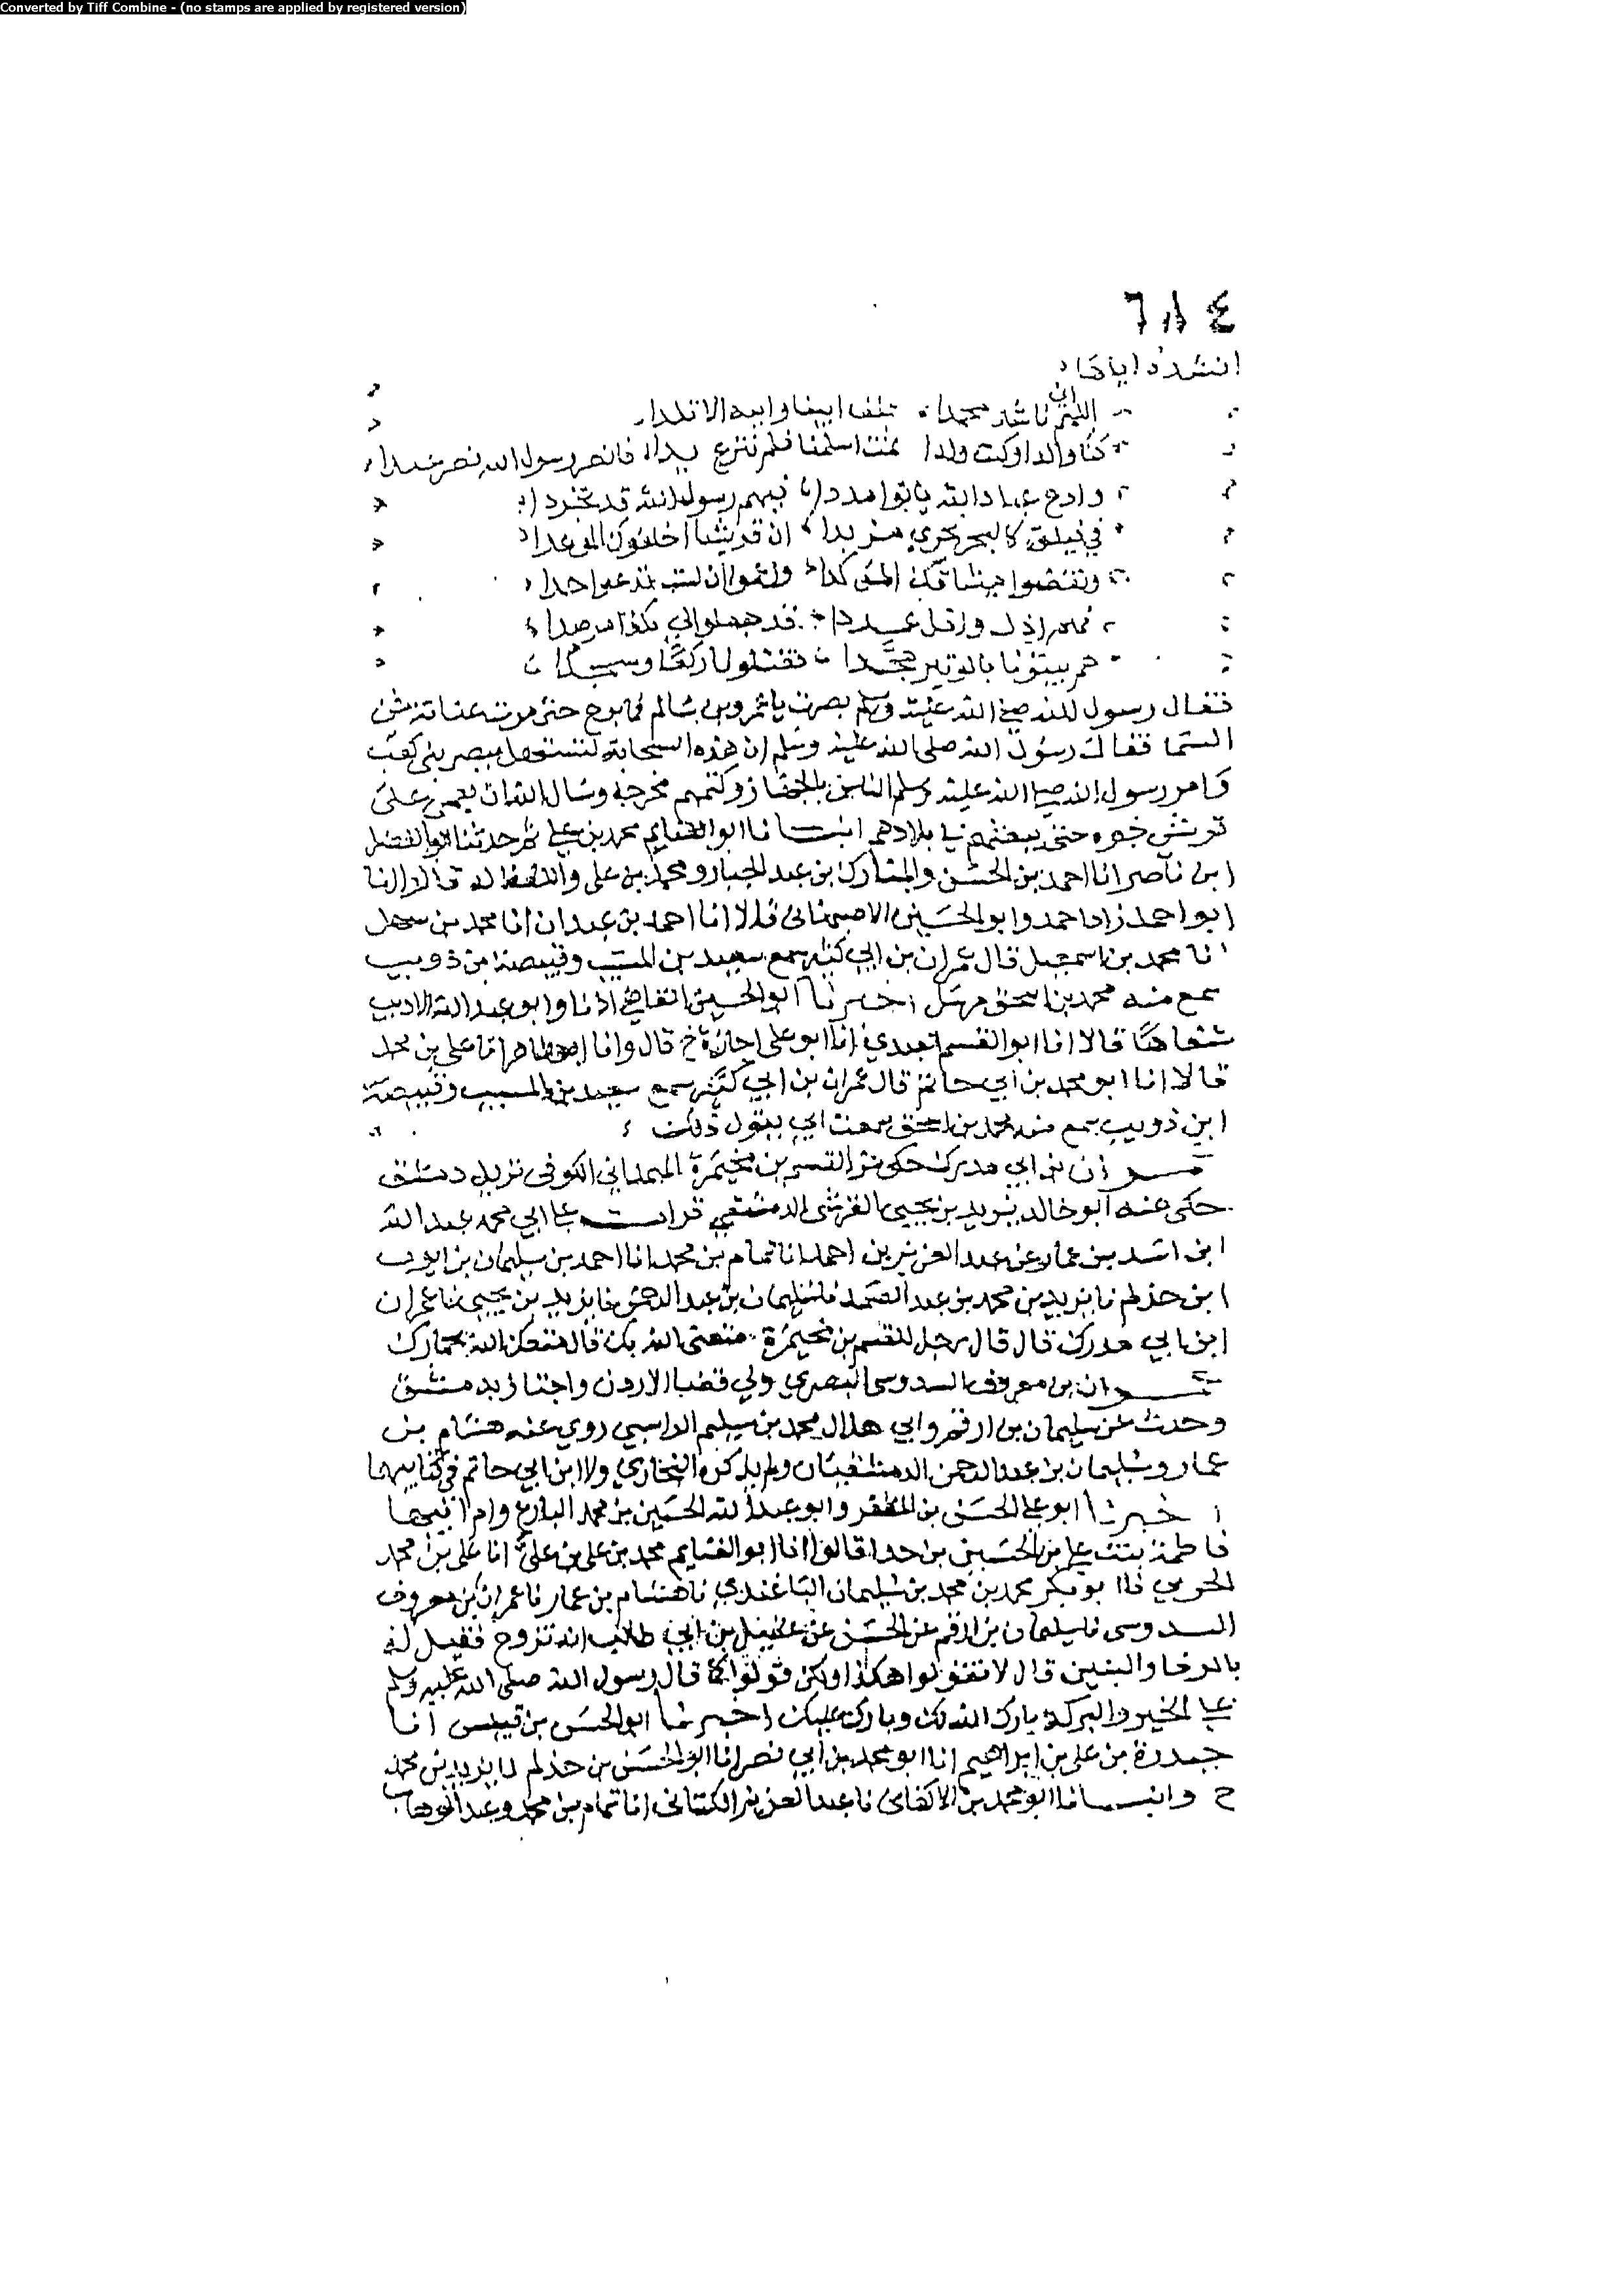 Converted by Tiff Combine - (no stamps are applied by registered version)
٦٨٤
انشده اياها
اللهم اني ناشد محمدا حلف ابينا وابيه الاتلدا
كنا والدا وكنت ولدا ثمت اسلمنا فلم ننزع يدا فانصر رسول الله نصر عبدا
وادع عباد الله ياتوا مددا فيهم رسول الله قد تجردا
في فيلق كالبحر يجري مزبدا ان قريشا اخلفوك الموعدا
ونقضوا ميثاقك الموكدا وزعموا ان لست تدعو احدا
فهم اذل واقل عددا قد جعلوا لي بكدا مرصدا
هم بيتونا بالوتير هجدا فقتلونا ركعا وسجدا
فقال رسول الله صلى الله عليه وسلم نصرت يا عمرو بن سالم فما برح حتى مرت عنانة من
السما فقال رسول الله صلى الله عليه وسلم ان هذه السحابة لتستهل بنصر بني كعب
وامر رسول الله صلى الله عليه وسلم الناس بالجهاز وكتمهم مخرجه وسال الله ان يعمي على
قريش خبره حتى يبغتهم في بلادهم انبانا ابو الغنايم محمد بن علي ثم حدثنا ابو الفضل
ابن ناصر انا احمد بن الحسن والمبارك بن عبد الجبار ومحمد بن علي واللفظ له قالوا انا
ابو احمد زاد احمد وابو الحسين الاصبهاني قالا انا احمد بن عبدان انا محمد بن سهل
انا محمد بن اسمعيل قال عمران بن ابي كثير سمع سعيد بن المسيب وقبيصة بن ذويب
سمع منه محمد بن اسحق مرسل اخبرنا ابو الحسين القاضي اذنا وابو عبد الله الاديب
شفاها قالا انا ابو القسم العبدي انا ابو علي اجازة ح قال وانا ابو طاهر انا علي بن محمد
قالا انا ابو محمد بن ابي حاتم قال عمران بن ابي كثير سمع سعيد بن المسيب وقبيصة
ابن ذويب سمع منه محمد بن اسحق سمعت ابي يقول ذلك
عمران بن ابي مدرك حكى عن القسم بن مخيمرة الهمداني الكوفي نزيل دمشق
حكى عنه ابو خالد يزيد بن يحيى القرشي الدمشقي قرات على ابي محمد عبد الله
ابن اسد بن عمار عن عبد العزيز بن احمد انا تمام بن محمد انا احمد بن سليمان بن ايوب
ابن حذلم نا يزيد بن محمد بن عبد الصمد نا سليمان بن عبد الرحمن نا يزيد بن يحيى نا عمران
ابن ابي مدرك قال قال رجل للقسم بن مخيمرة متعني الله بك قال متعك الله بحمارك
عمران بن معروف السدوسي البصري ولي قضا الاردن واجتاز بدمشق
وحدث عن سليمان بن ارقم وابي هلال محمد بن سليم الراسبي روى عنه هشام بن
عمار وسليمان بن عبد الرحمن الدمشقيان ولم يذكره البخاري ولا ابن ابي حاتم في كتابيهما
اخبرنا ابو علي الحسن بن المظفر وابو عبد الله الحسين بن محمد البارع وام ابيها
فاطمة بنت علي بن الحسين بن جدا قالوا انا ابو الغنايم محمد بن علي بن علي انا علي بن محمد
الحربي نا ابو بكر محمد بن محمد بن سليمان الباغندي نا هشام بن عمار نا عمران بن معروف
السدوسي نا سليمان بن ارقم عن الحسن عن عقيل بن ابي طالب انه تزوج فقيل له
بالرفا والبنين قال لا تقولوا هكذا ولكن قولوا كما قال رسول الله صلى الله عليه وسلم
على الخير والبركة بارك الله لك وبارك عليك اخبرنا ابو الحسن بن قبيس انا
حيدرة بن علي بن ابراهيم انا ابو محمد بن ابي نصر انا ابو الحسن بن حذلم نا يزيد بن محمد
ح وانبانا ابو محمد بن الاكفاني نا عبد العزيز الكتاني انا تمام بن محمد وعبد الوهاب